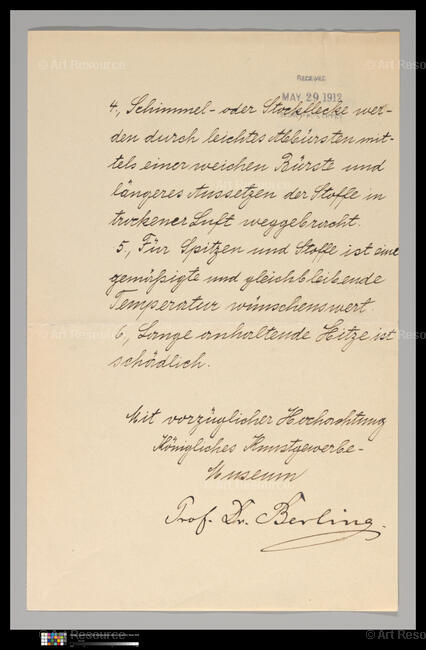 © Art Resource
RECEIVED
MAY 29 1912
4., Schimmel- oder Stockflecke wer-
den durch leichtes Abbürsten mit-
tels einer weichen Bürste und
längeres Aussetzen der Stoffe in
trockener Luft weggebracht.
5., Für Spitzen und Stoffe ist eine
gemäßigte und gleichbleibende
Temperatur wünschenswert.
6., Lange anhaltende Hitze ist
schädlich.
Mit vorzüglicher Hochachtung
Königliches Kunstgewerbe-
Museum
Prof. Dr. Berling.